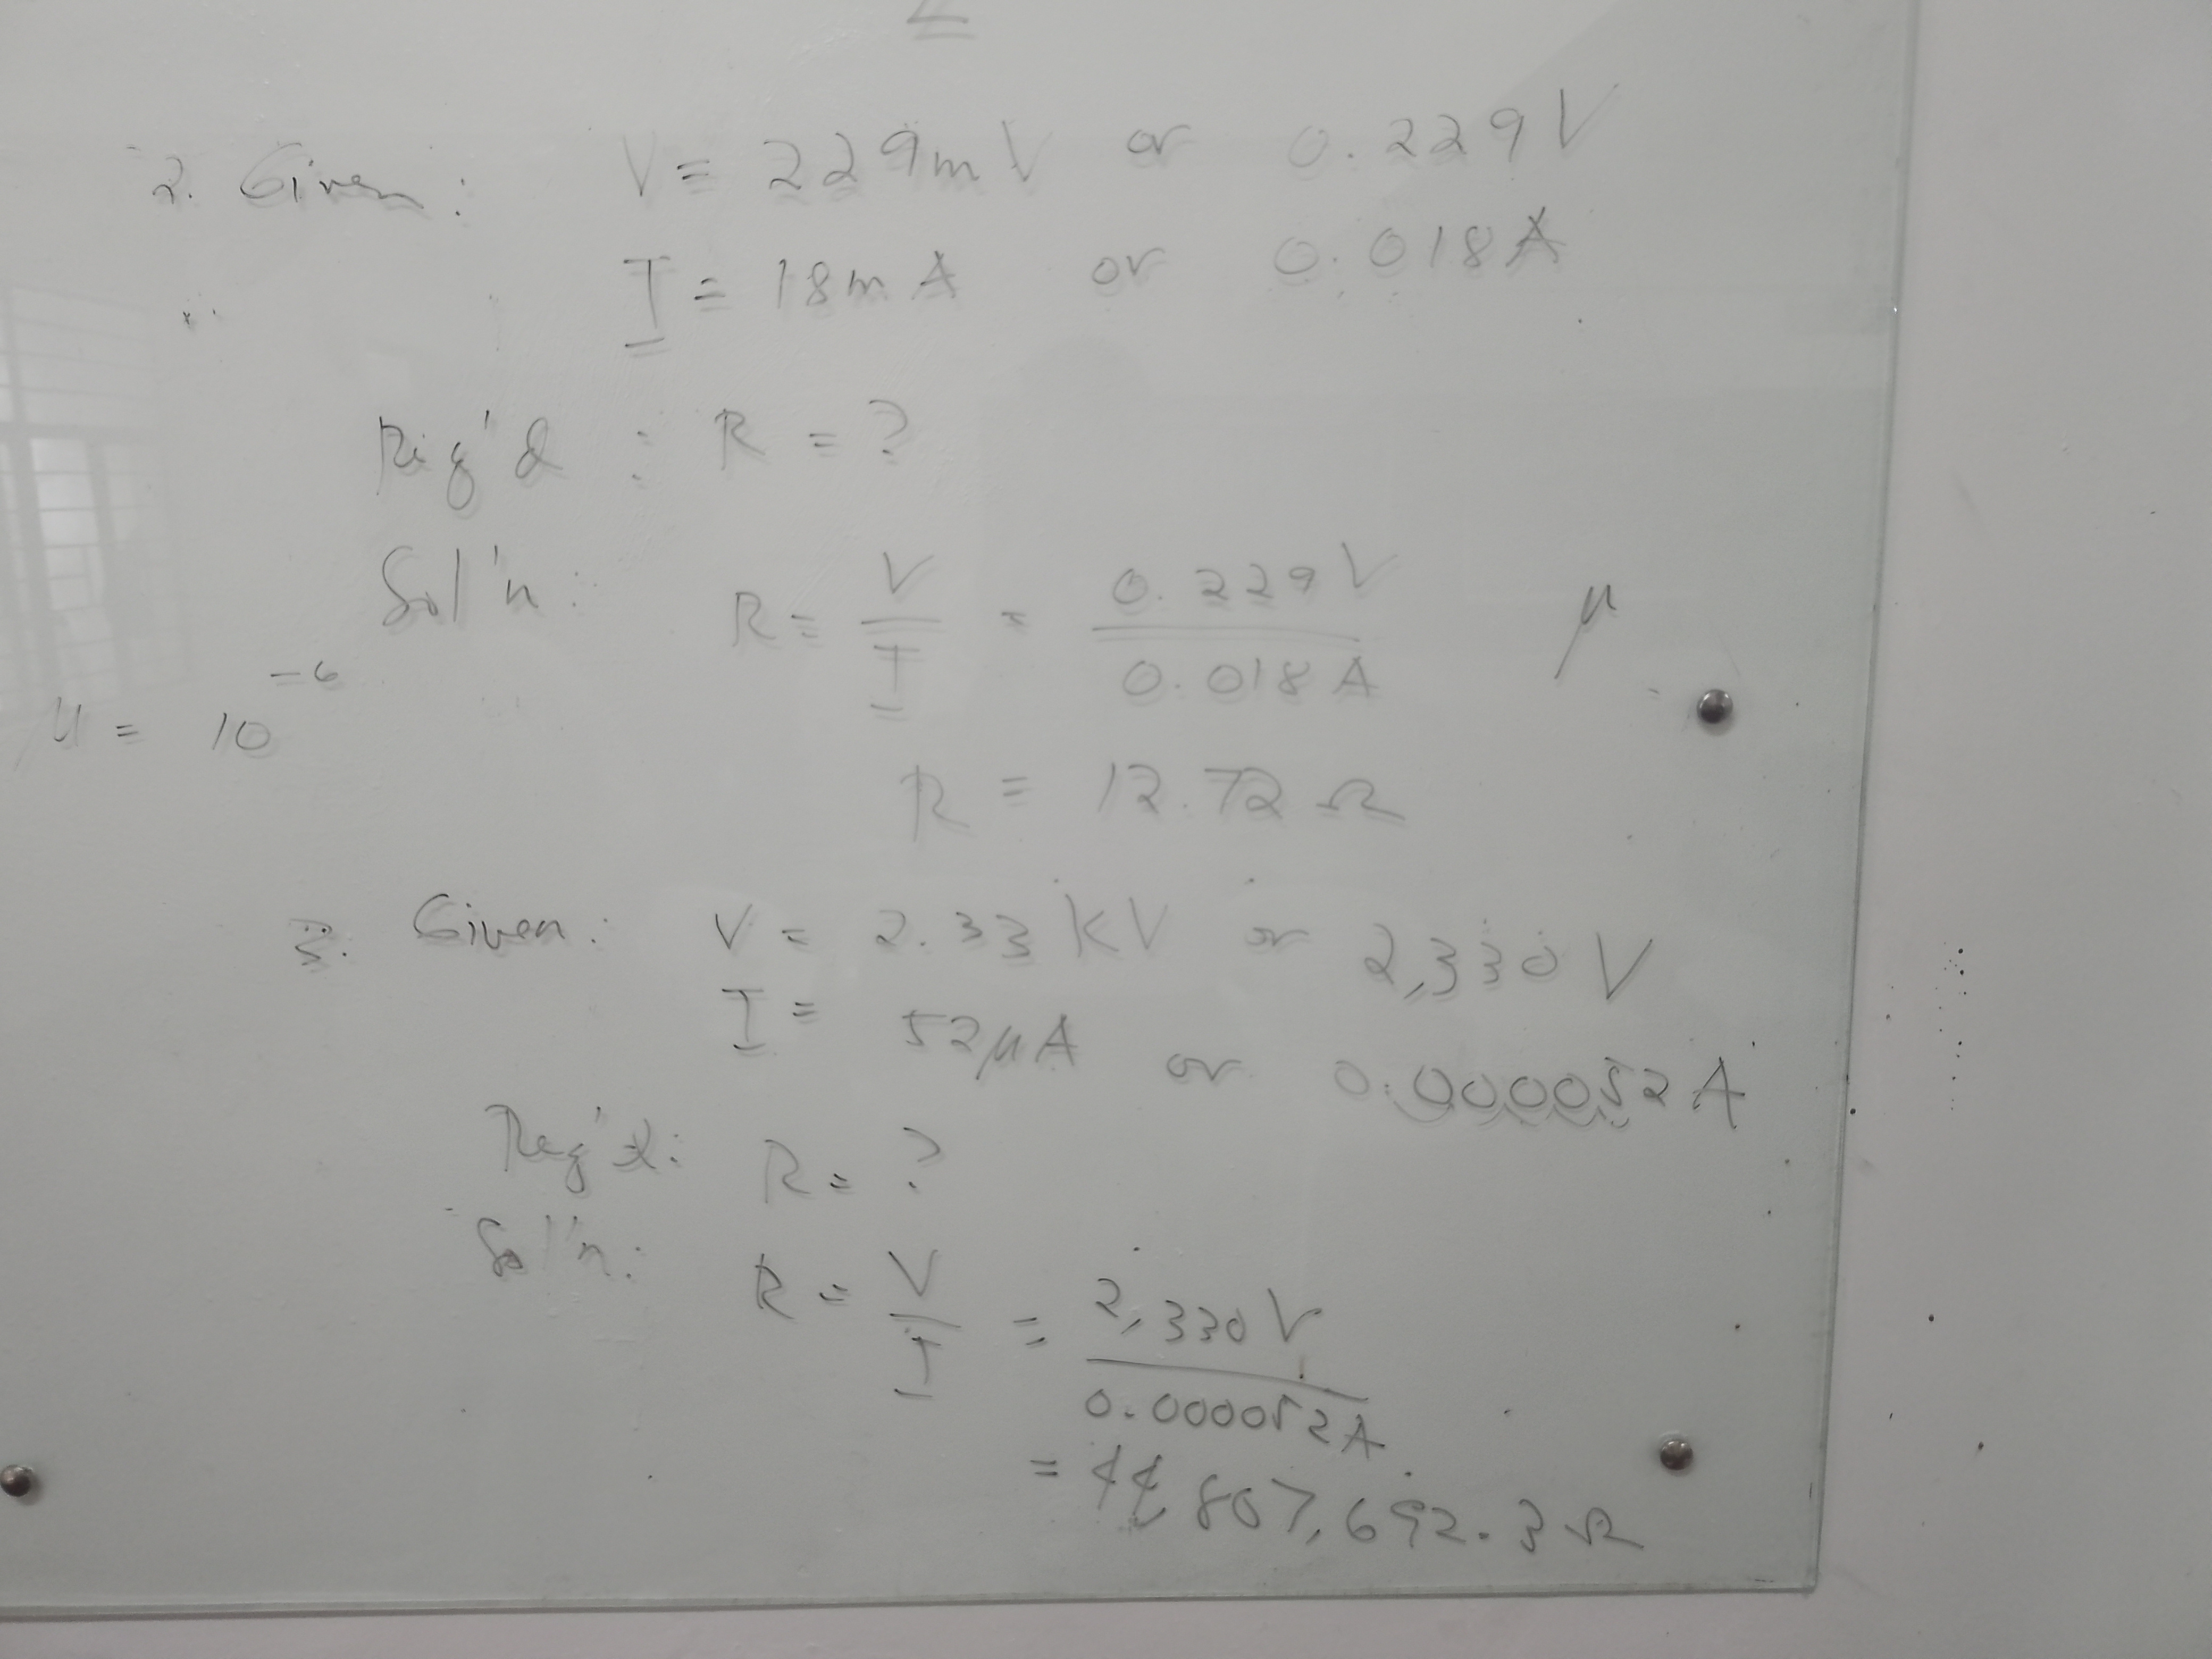 2. Given: V = 229mV or 0.229V
I = 18mA or 0.018A
Req'd : R = ?
Sol'n: R = V/I = 0.229V/0.018A
μ
μ = 10^-6
R = 12.72 Ω
3. Given: V = 2.33 KV or 2,330 V
I = 52μA or 0.000052A
Req'd: R = ?
Sol'n: R = V/I = 2,330V/0.000052A
= 44,807,692.3 Ω